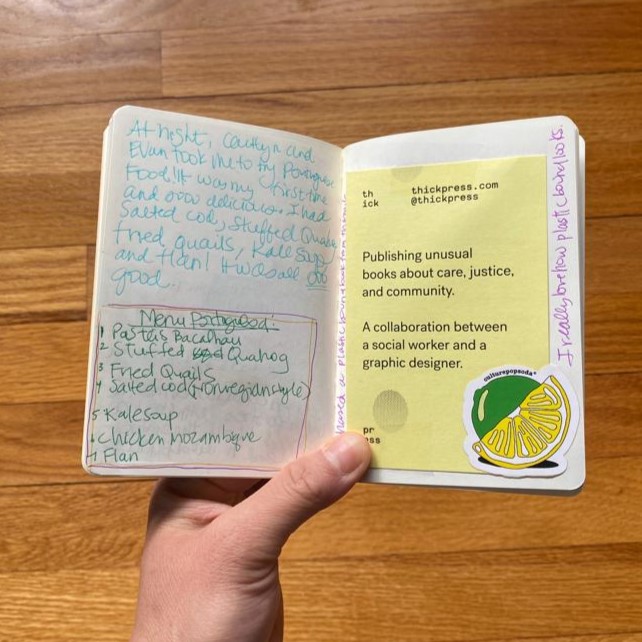 At night, Caitlyn and
Evan took me to try Portuguese
Food! It was my first time
and sooo delicious. I had
Salted cod, stuffed Quahog
fried quails, Kale Soup
and flan! It was all ooo
good.
Menu Portuguese:
1 Pasteis Bacalhau
2 Stuffed Quahog
3 Fried Quails
4 Salted cod (norwegian style)
5 Kale soup
6 Chicken mozambique
7 Flan
a plastic bound book from them
th
ick
thickpress.com
@thickpress
Publishing unusual
books about care, justice,
and community.
A collaboration between
a social worker and a
graphic designer.
pr
ess
culturepopsoda
I really love how plastic bound looks.